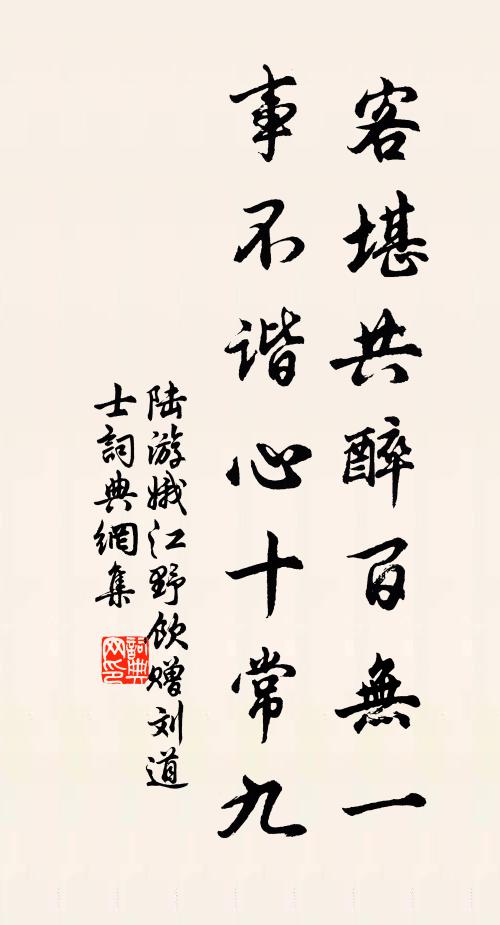 客堪共醉百無一
事不谐心十常九
陆游娥江野飲赠刘道
士詞典網集
詞典
网印